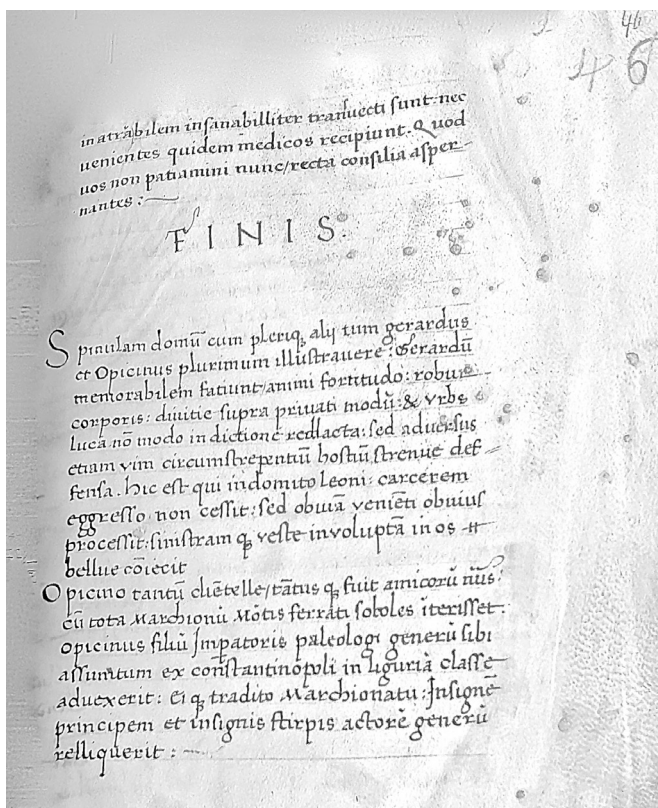 46
46
in atrãbilem insanabilliter tranuecti sunt: nec
uenientes quidem medicos recipiunt. Quod
uos non patiamini nunc/recta consilia asper-
nantes :~
FINIS.
Spinulam domũ cum pleriq; alij tum gerardus
et Opicinus plurimum illustrauere: Gerardũ
memorabilem fatiunt/animi fortitudo: robur
corporis: diuitie supra priuati modũ: & vrbs
luca nõ modo in dictionẽ redacta: sed aduersus
etiam vim circumstrepentiũ hostiũ strenue def-
fensa. hic est qui indomito leoni: carcerem
eggresso non cessit: sed obuiã veniẽti obuius
processit: sinistram q; veste inuoluptã in os
bellue cõiecit
Opicino tantũ cliẽtelle/tãtus q; fuit amicorũ nũs:
cũ tota Marchionũ Mõtis ferrati soboles ĩterisset:
opicinus filiũ Impatoris paleologi generũ sibi
assumtum ex cõstantinopoli in liguriã classe
aduexerit: Ei q; tradito Marchionatu: Insignẽ
principem et insignis stirpis actorẽ generũ
relliquerit :~